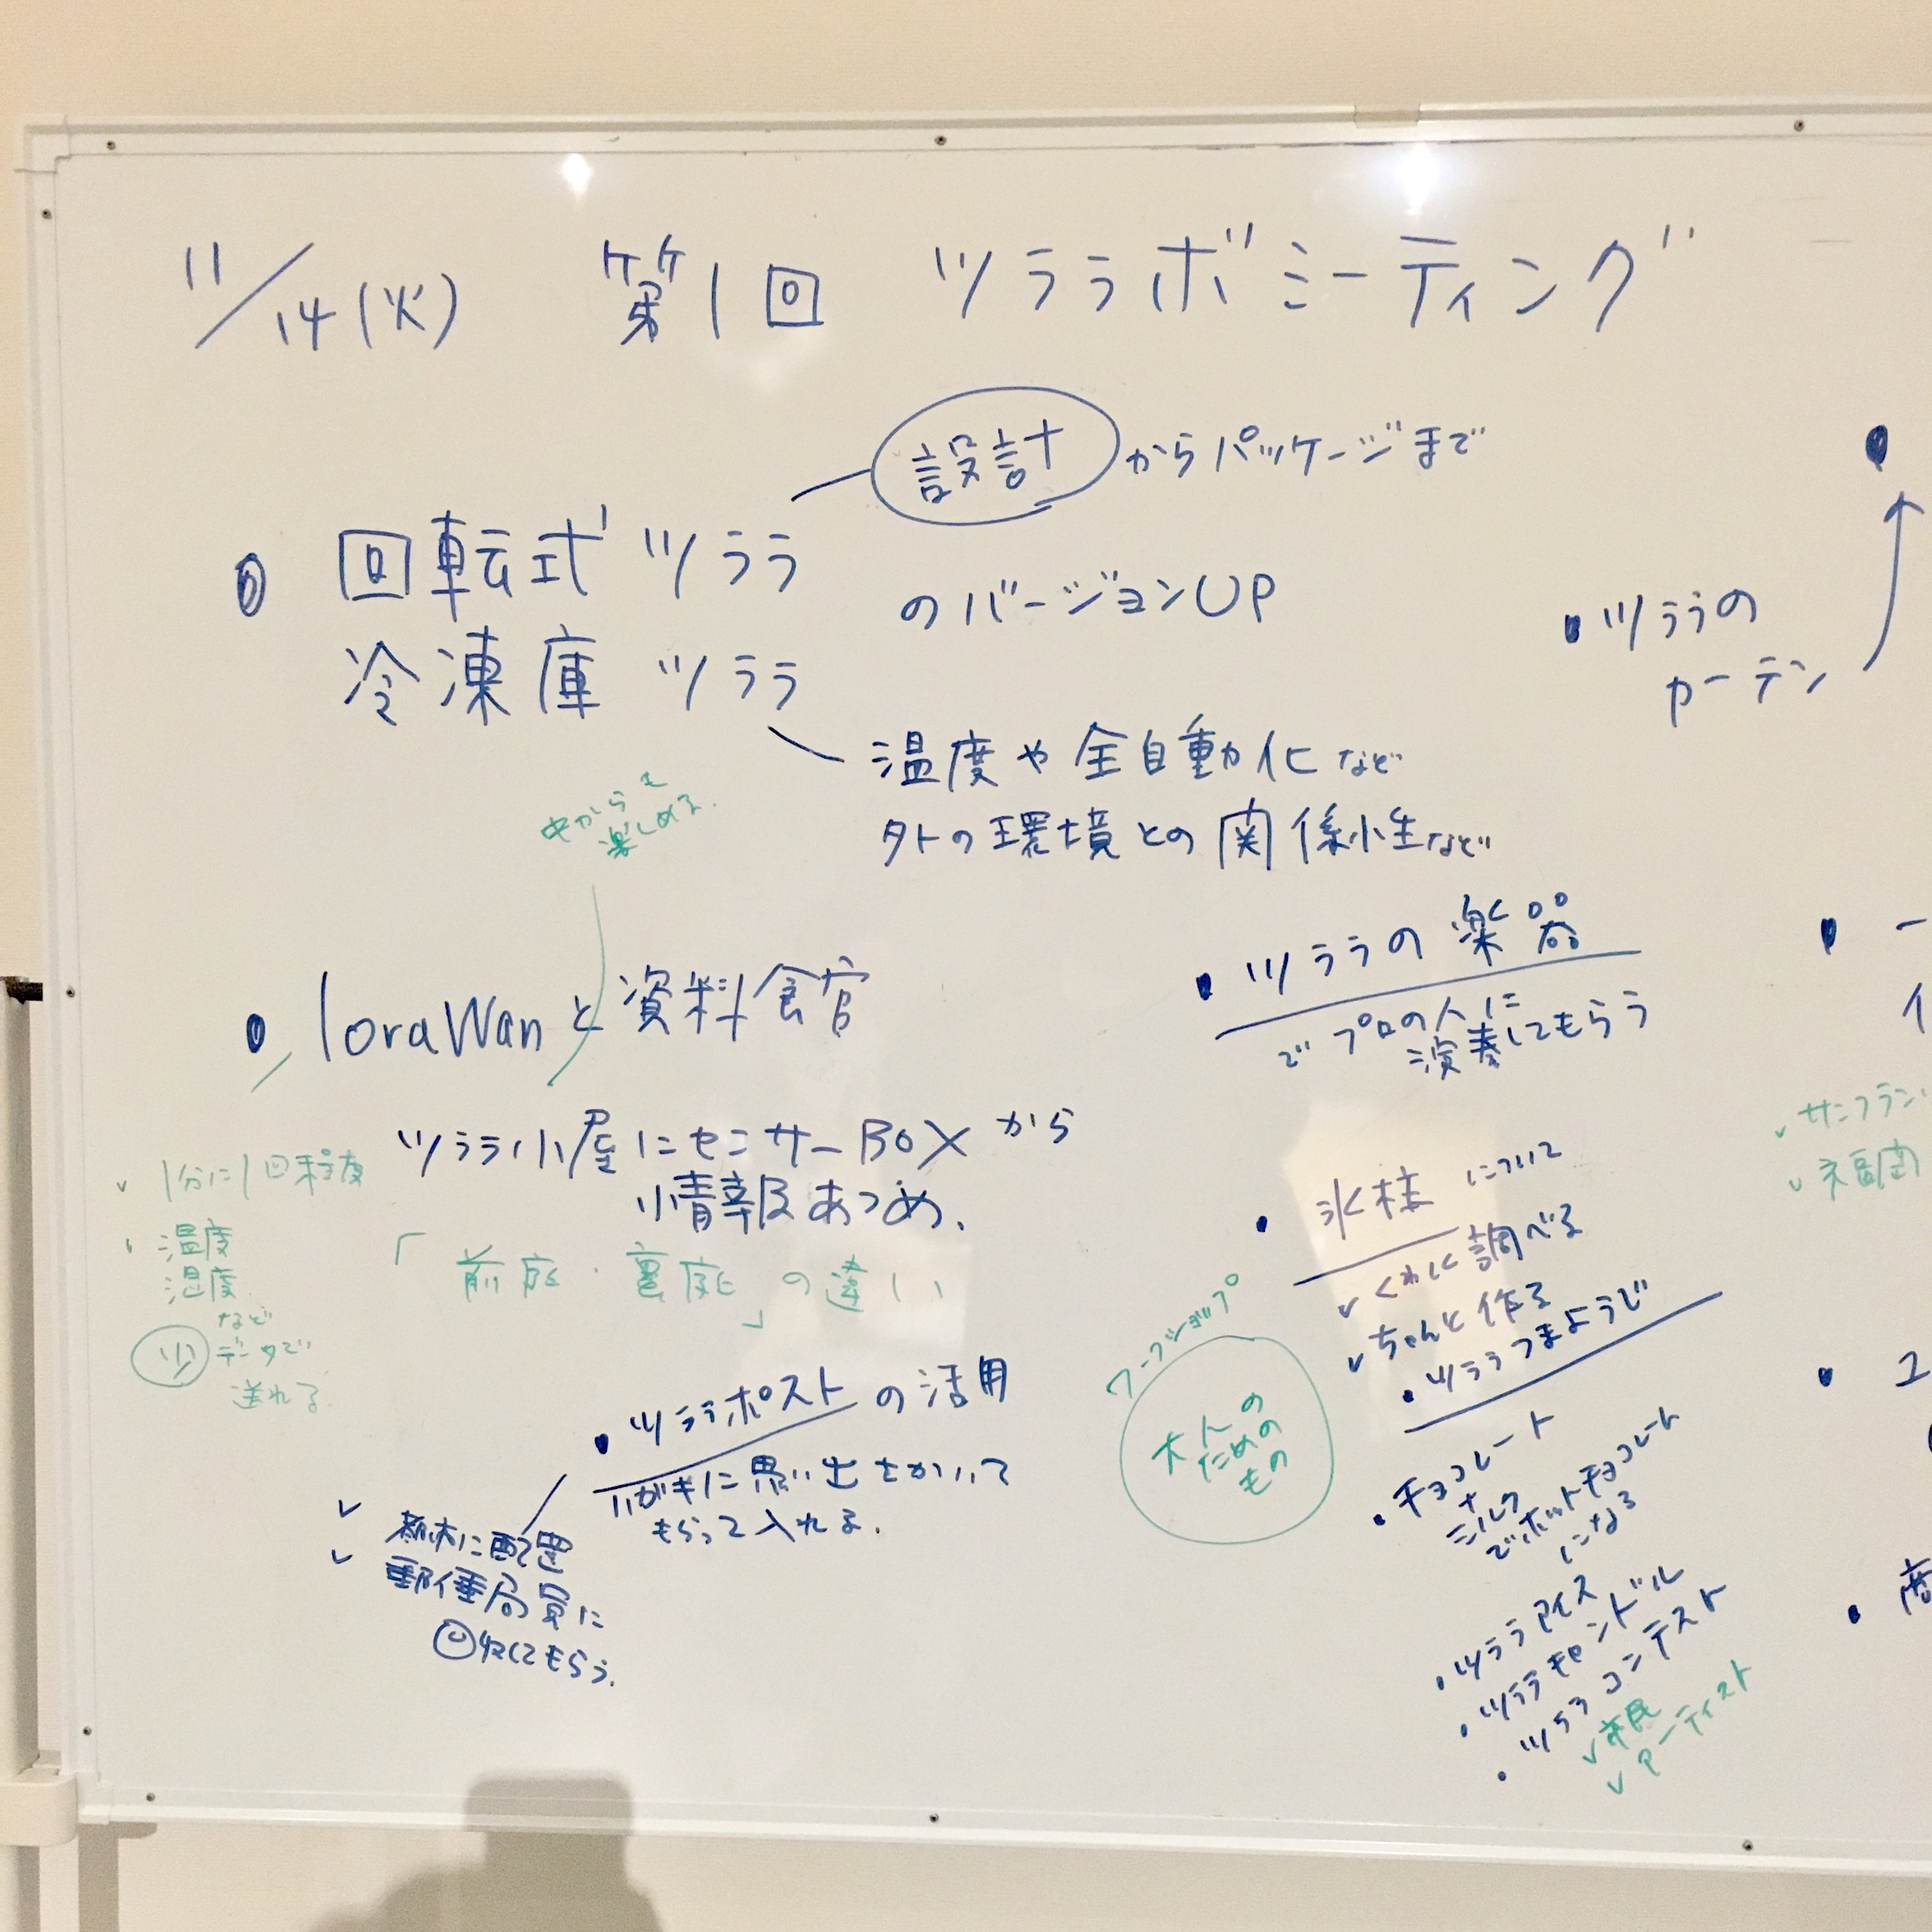 11/14(火) 第1回 ツララボミーティング
設計からパッケージまで
回転式ツララ
冷凍庫ツララ
のバージョンUP
温度や全自動化など
外の環境との関係性など
ツララの
カーテン
楽しめる.
loraWanと資料館
ツララ小屋にセンサーBOXから
情報あつめ、
「前庭・裏庭」の違い
1分に1回程度
温度
湿度
など
少 データで
送れる.
ツララポストの活用
ハガキに思い出をかいて
もらって入れる.
に配置
郵便局員に
回収してもらう.
ツララの楽器
でプロの人に
演奏してもらう
氷柱について
くわしく調べる
ちゃんと作る
ツララつまようじ
ワークショップ
大人の
ための
もの
チョコレート
+
ミルク
でホットチョコレート
になる
ツララアイス
ツララキャンドル
ツララコンテスト
市民
アーティスト
サンフラン
福岡